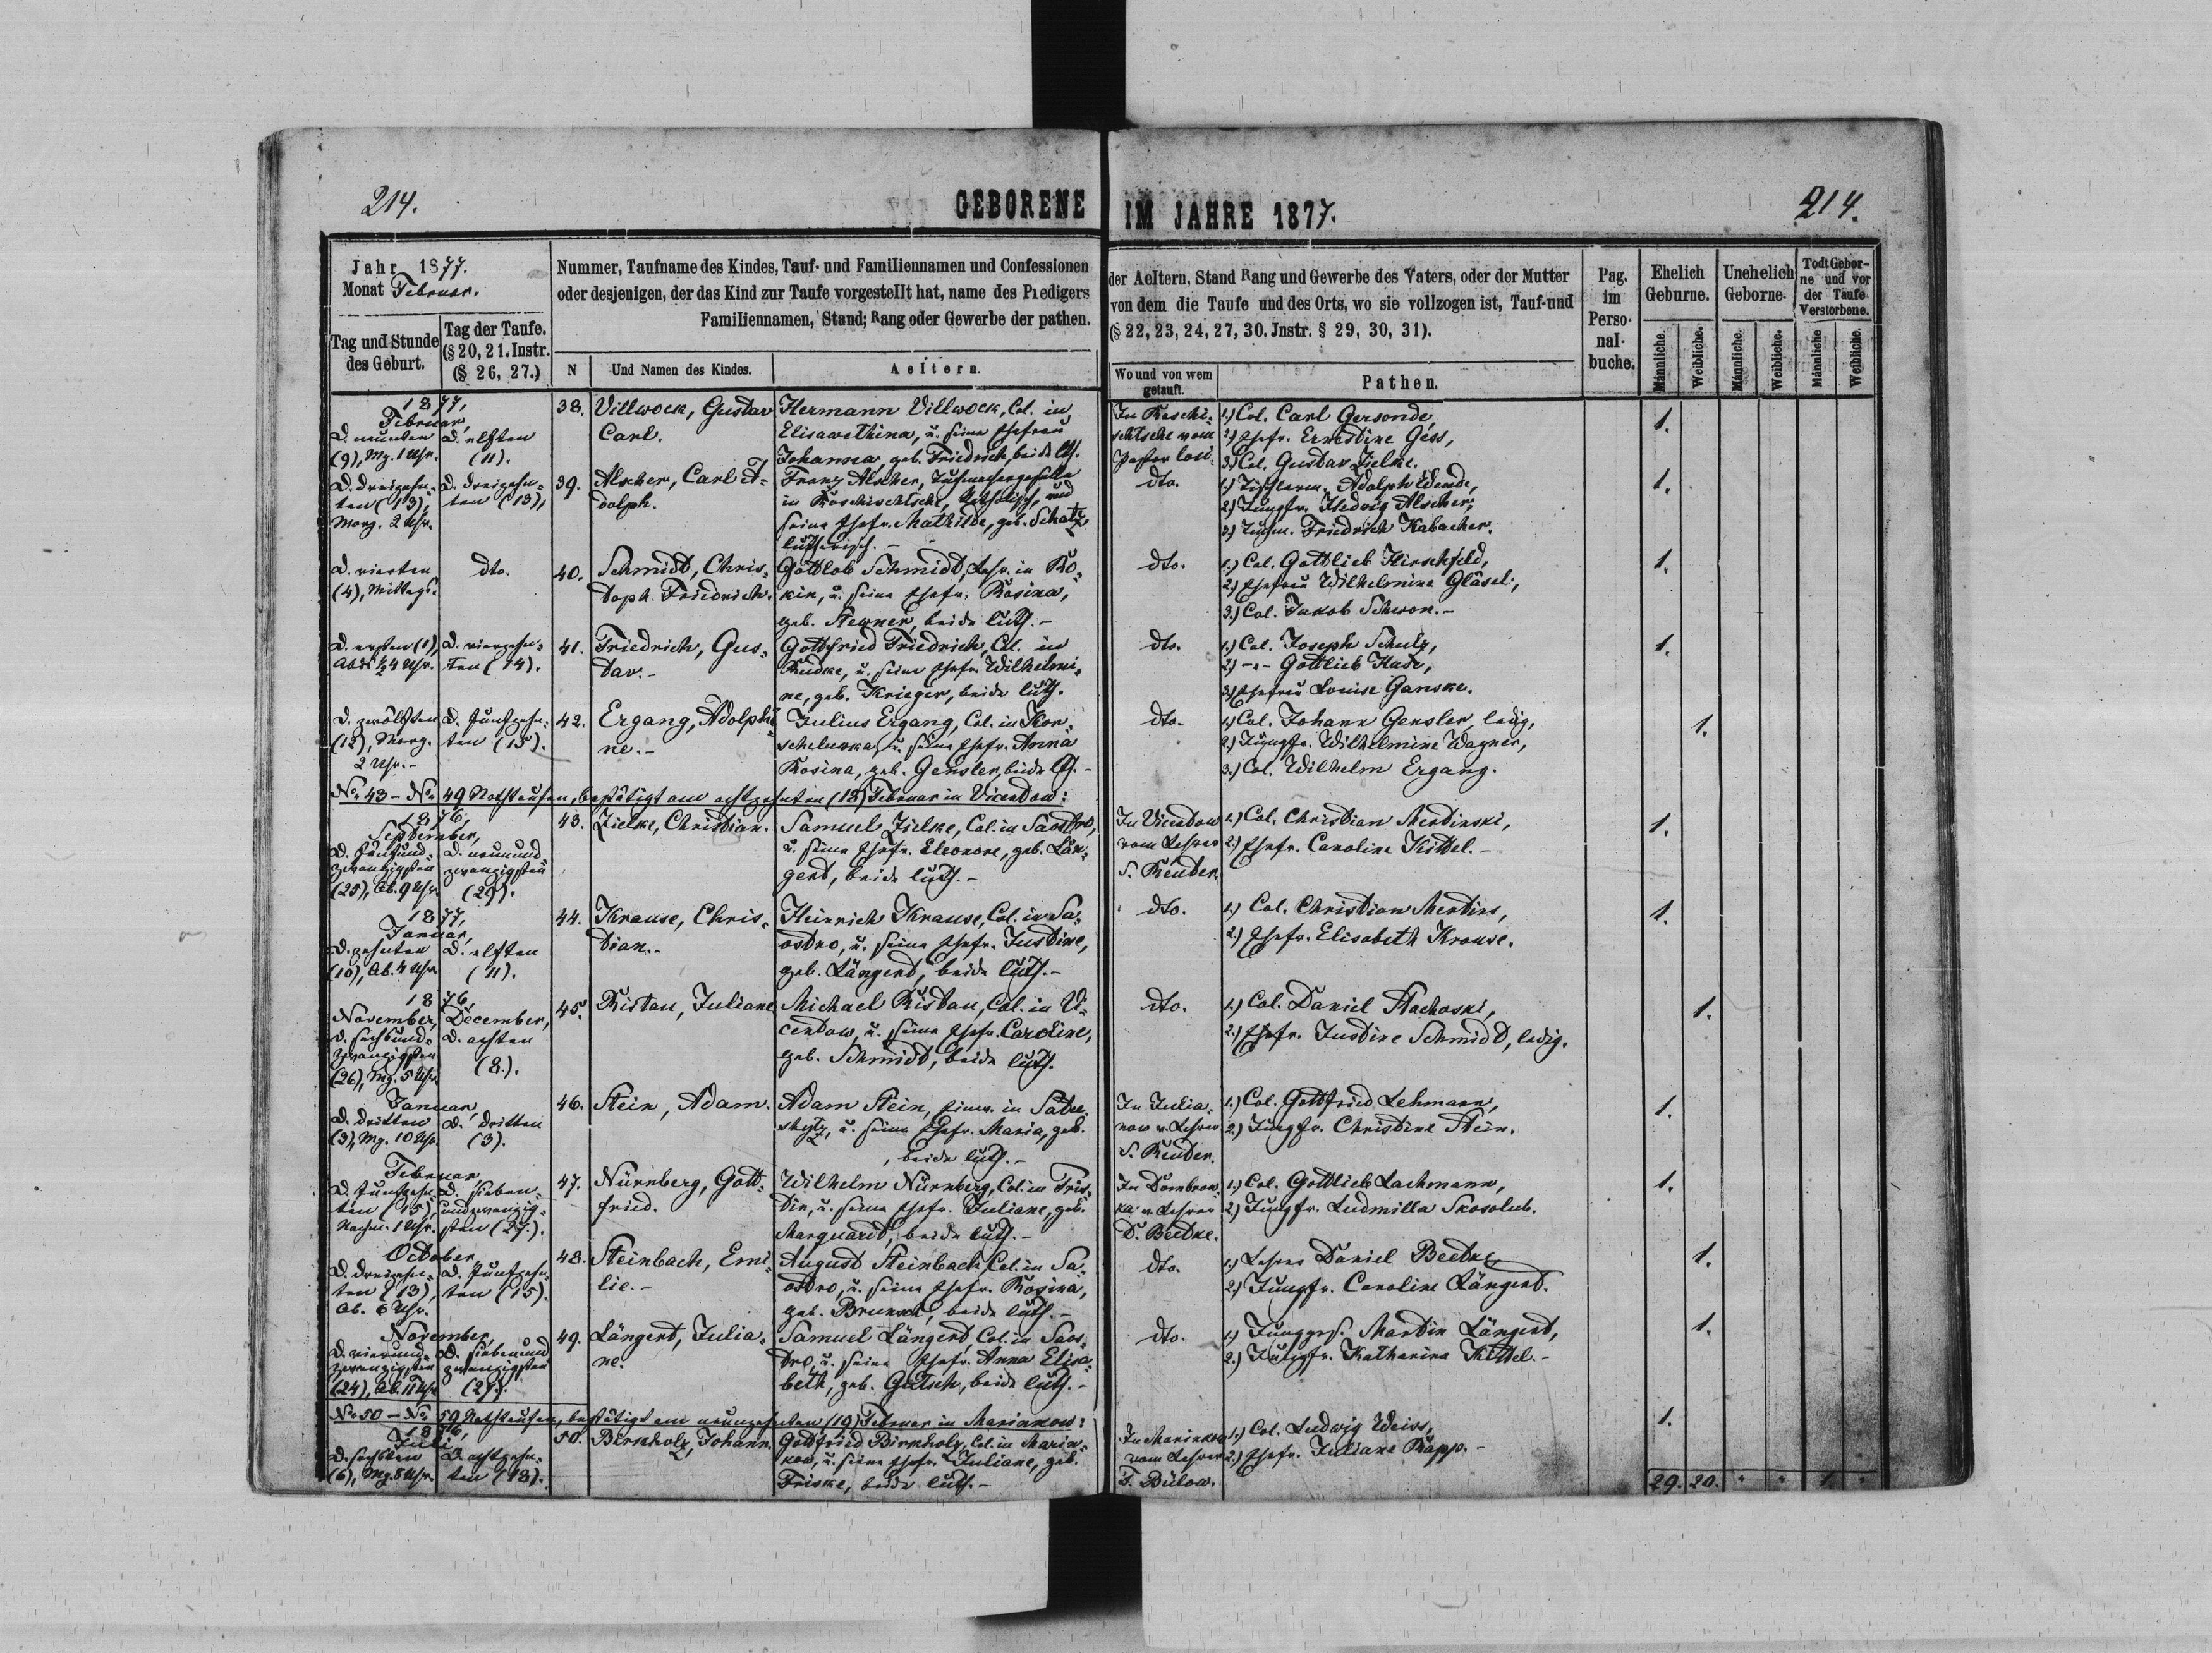 214.
GEBORENE
IM JAHRE 1877.
214.
Jahr 1877.
Monat Februar.
Tag und Stunde
des Geburt.
Tag der Taufe.
(§ 20, 21. Instr.
(§ 26, 27.)
Nummer, Taufname des Kindes, Tauf- und Familiennamen und Confessionen
oder desjenigen, der das Kind zur Taufe vorgestellt hat, name des Piedigers
Familiennamen, Stand; Rang oder Gewerbe der pathen.
N
Und Namen des Kindes.
Aeltern.
der Aeltern, Stand Rang und Gewerbe des Vaters, oder der Mutter
von dem die Taufe und des Orts, wo sie vollzogen ist, Tauf-und
(§ 22, 23, 24, 27, 30. Jnstr. § 29, 30, 31).
Wo und von wem
getauft.
Pathen.
Pag.
im
Perso-
nal-
buche.
Ehelich
Geburne.
Unehelich
Geborne.
Todt Gebor-
ne und vor
der Taufe
Verstorbene.
Männliche.
Weibliche.
Männliche.
Weibliche.
Männliche
Weibliche.
1877,
Februar,
D. neunten
(9), Mg. 1 Uhr.
D. elften
(11).
38.
Villwock, Gustav
Carl.
Hermann Villwock, Col. in
Elisawethina, u. seine Ehefrau
Johanna, geb. Friedrich, beide lth.
In Roschi-
schtsche vom
Pastor
1.) Col. Carl Gersonde,
2.) Ehefr. Ernestine Gess,
3.) Col. Gustav Zielke.
1.
D. dreizehn-
ten (13),
Morg. 2 Uhr.
D. dreizehn-
ten (13),
39.
Alscher, Carl A-
dolph.
Franz Alscher, Tuchmachergeselle
in Roschischtsche, katholisch, und
seine Ehefr. Mathilde, geb. Schatz,
lutherisch. –
dto.
1.) Tischlerm. Adolph Wende,
2.) Jungfr. Hedwig Alscher,
3.) Tuchm. Friedrich Kabacher.
1.
D. vierten
(4), Mittags.
dto.
40.
Schmidt, Chris-
toph Friedrich.
Gottlob Schmidt, Lehr. in Ro-
kin, u. seine Ehefr. Rosina,
geb. Stewner, beide luth. –
dto.
1.) Col. Gottlieb Hirschfeld,
2.) Ehefrau Wilhelmine Gläsel,
3.) Col. Jakob Schwon. –
1.
D. ersten (1),
Abds ½4 Uhr.
D. vierzehn-
ten (14).
41.
Friedrich, Gus-
tav. –
Gottfried Friedrich, Col. in
Rudke, u. seine Ehefr. Wilhelmi-
ne, geb. Krieger, beide luth.
dto.
1.) Col. Joseph Schulz,
2.) -„- Gottlieb Hade,
3.) Ehefrau Louise Ganske.
1.
D. zwölften
(12), Morg.
2 Uhr. –
D. fünfzehn-
ten (15).
42.
Ergang, Adolphi-
ne. –
Julius Ergang, Col. in Kor-
scheluwka, u. seine Ehefr. Anna
Rosina, geb. Gensler, beide lth. –
dto.
1.) Col. Johann Gensler, ledig,
2.) Jungfr. Wilhelmine Wagner,
3.) Col. Wilhelm Ergang.
1.
No. 43 – No. 49 Nothtaufen, bestätigt am achtzehnten (18) Februar in Vicentow:
1876,
September,
D. fünfund-
zwanzigsten
(25), Ab. 9 Uhr.
D. neunund-
zwanzigsten
(29).
43.
Zielke, Christian.
Samuel Zielke, Col. in Saostro,
u. seine Ehefr. Eleonore, geb. Län-
gert, beide luth. –
In Vicentow
vom Lehrer
S. Reuter.
1.) Col. Christian Mertinski,
2.) Ehefr. Caroline Kittel. –
1.
1877,
Januar,
D. zehnten
(10), Ab. 4 Uhr.
D. elften
(11).
44.
Krause, Chris-
tian. –
Heinrich Krause, Col. in Sa-
ostro, u. seine Ehefr. Justine,
geb. Längert, beide luth. –
dto.
1.) Col. Christian Mertins,
2.) Ehefr. Elisabeth Krause.
1.
1876,
November,
D. sechsund-
zwanzigsten
(26), Mg. 5 Uhr.
December,
D. achten
(8.).
45.
Ristau, Juliane
Michael Ristau, Col. in Vi-
centow, u. seine Ehefr. Caroline,
geb. Schmidt, beide luth.
dto.
1.) Col. Daniel Stachoski,
2.) Ehefr. Justine Schmidt, ledig.
1.
Januar,
D. dritten
(3), Mg. 10 Uhr.
D. dritten
(3).
46.
Stein, Adam.
Adam Stein, Einw. in Satu-
, u. seine Ehefr. Maria, geb.
, beide luth. –
In Julia-
now v. Lehrer
S. Reuter.
1.) Col. Gottfried Lehmann,
2.) Jungfr. Christine Stein.
1.
Februar,
D. fünfzehn-
ten (15),
Nachm. 1 Uhr.
D. sieben-
undzwanzig-
sten (27.).
47.
Nürnberg, Gott-
fried.
Wilhelm Nürnberg, Col. in Tris-
tin, u. seine Ehefr. Juliane, geb.
Marquard, beide luth. –
In Dombrow-
ka v. Lehrer
D. Beetke.
1.) Col. Gottlieb Lachmann,
2.) Jungfr. Ludmilla Skosolub.
1.
October,
D. dreizehn-
ten (13),
Ab. 6 Uhr.
D. fünfzehn-
ten (15).
48.
Steinbach, Emi-
lie. –
August Steinbach, Col. in Sa-
ostro, u. seine Ehefr. Rosina,
geb. Brunsch, beide luth. –
dto.
1.) Lehrer Daniel Beetke,
2.) Jungfr. Caroline Längert.
1.
November,
D. vierund-
zwanzigsten
(24), Ab. 11 Uhr
D. siebenund
zwanzigsten
(27).
49.
Längert, Julia-
ne.
Samuel Längert, Col. in Saos-
tro, u. seine Ehefr. Anna Elisa-
beth, geb. Gutsch, beide luth. –
dto.
1.) Junggs. Martin Längert,
2.) Jungfr. Katharina Kittel. –
1.
No. 50 – No. 59 Nothtaufen, bestätigt am neunzehnten (19) Februar in Marinkow:
1876,
Juli,
D. sechsten
(6), Mg. 8 Uhr.
D. achtzehn-
ten (18).
50.
Birkholz, Johann.
Gottfried Birkholz, Col. in Marin-
kow, u. seine Ehefr. Juliane, geb.
Friske, beide luth. –
In Marinkow
vom Lehrer
F. Bülow.
1.) Col. Ludwig Weiss,
2.) Ehefr. Juliane Rapp. –
1.
29. 20. " " 1. "